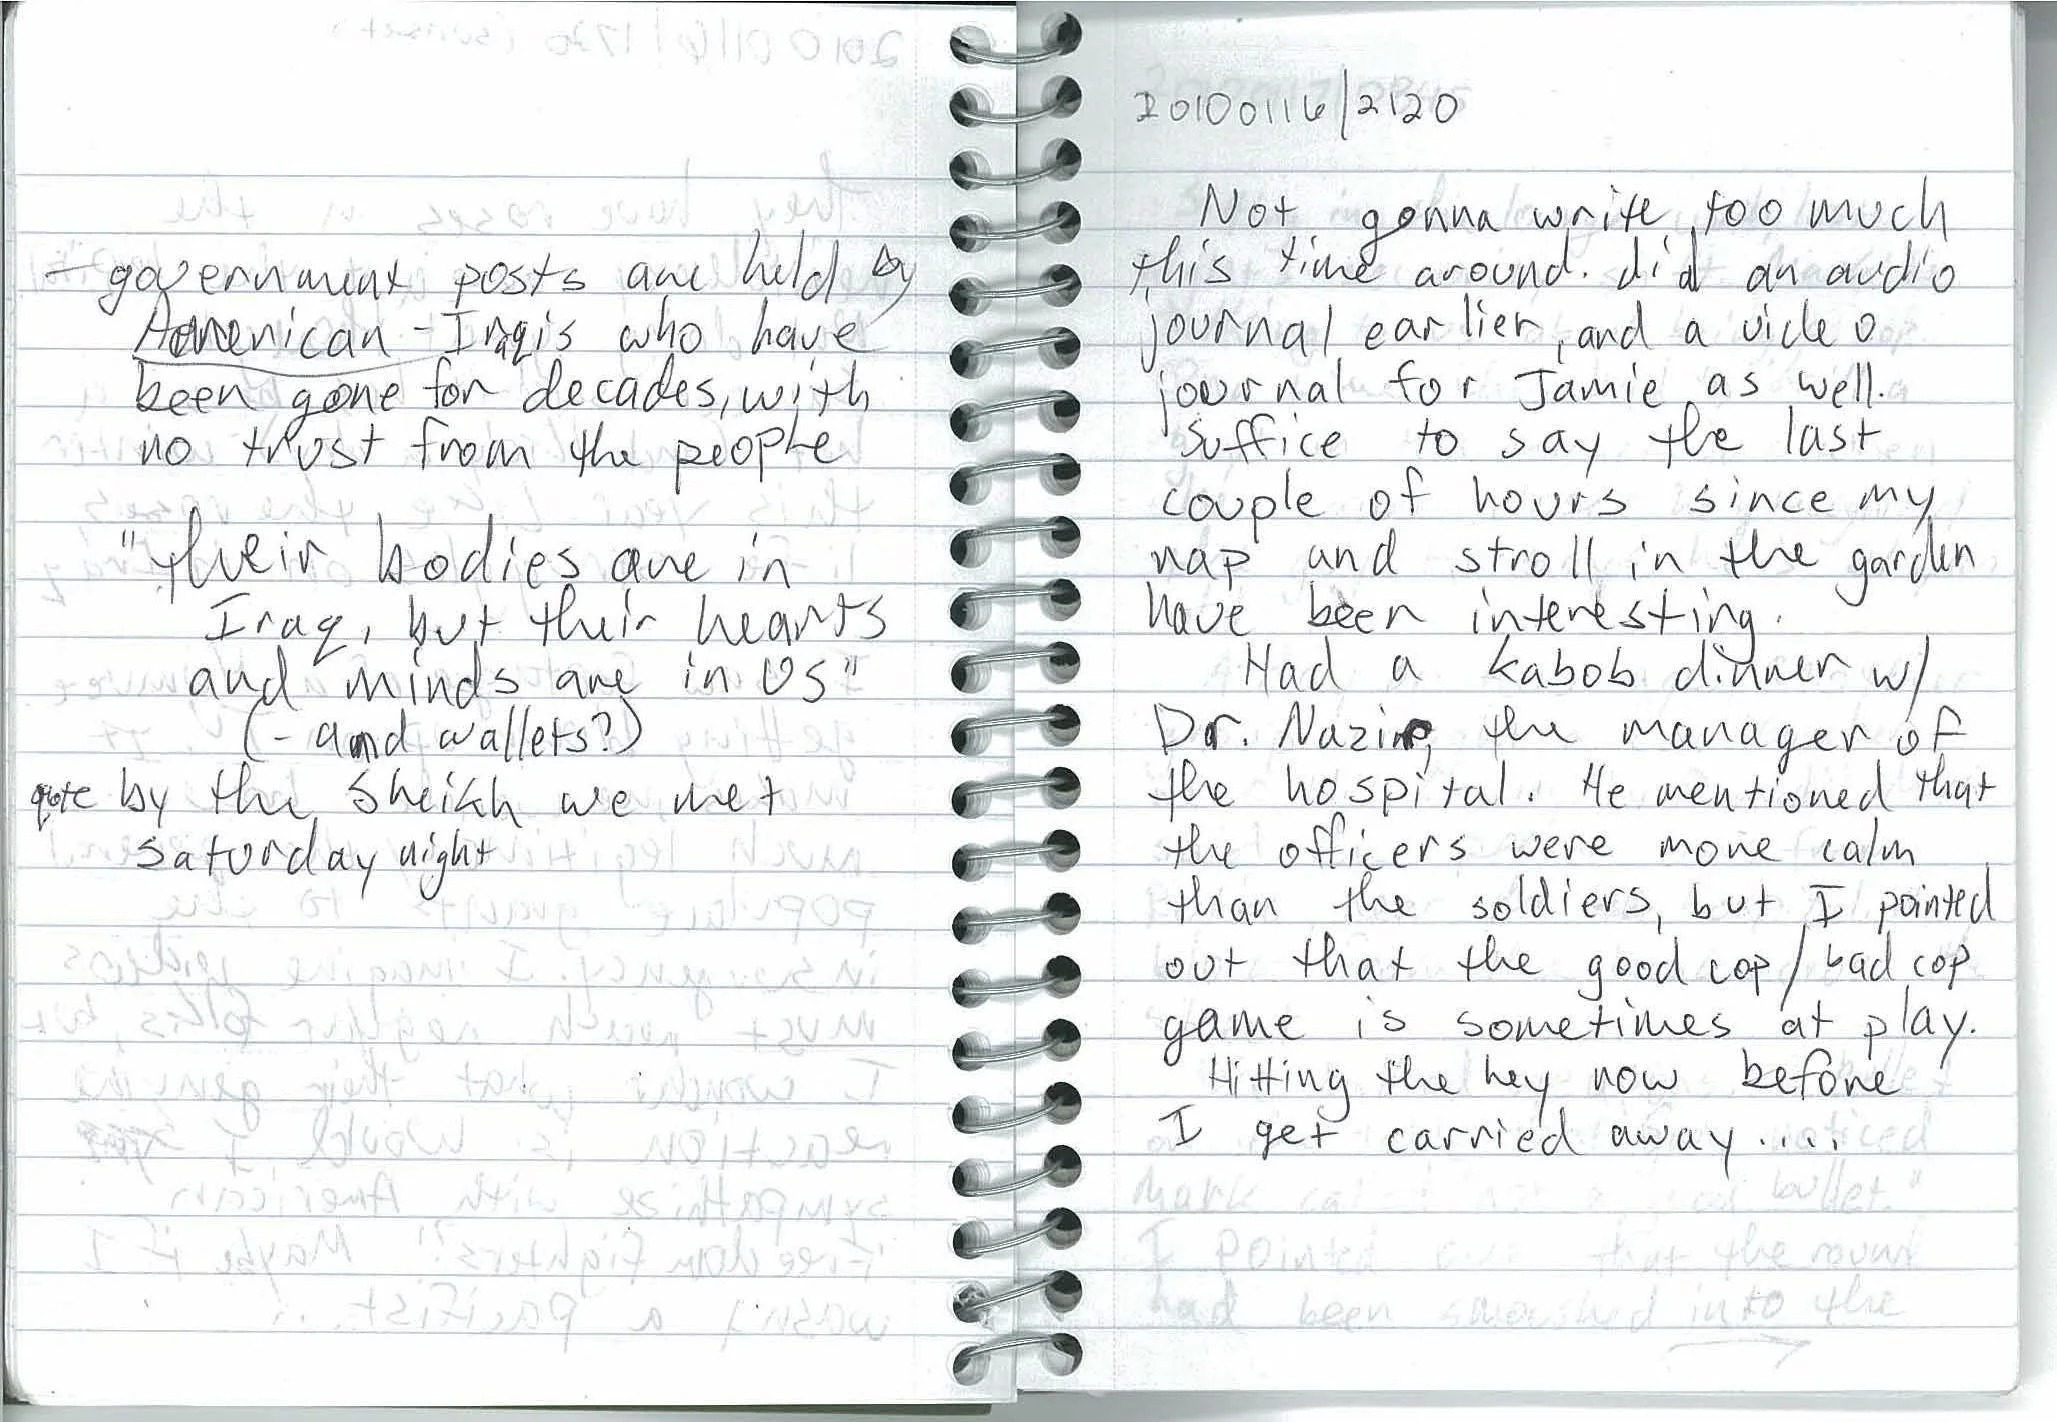 - government posts are held by
American-Iraqis who have
been gone for decades, with
no trust from the people
"their bodies are in
Iraq, but their hearts
and minds are in US"
(- and wallets?)
quote by the Sheikh we met
Saturday night
20100116/2120
Not gonna write too much
this time around. did an audio
journal earlier, and a video
journal for Jamie as well.
Suffice to say the last
couple of hours since my
nap and stroll in the garden
have been interesting.
Had a kabob dinner w/
Dr. the manager of
the hospital. He mentioned that
the officers were more calm
than the soldiers, but I pointed
out that the good cop/bad cop
game is sometimes at play.
Hitting the hey now before
I get carried away....